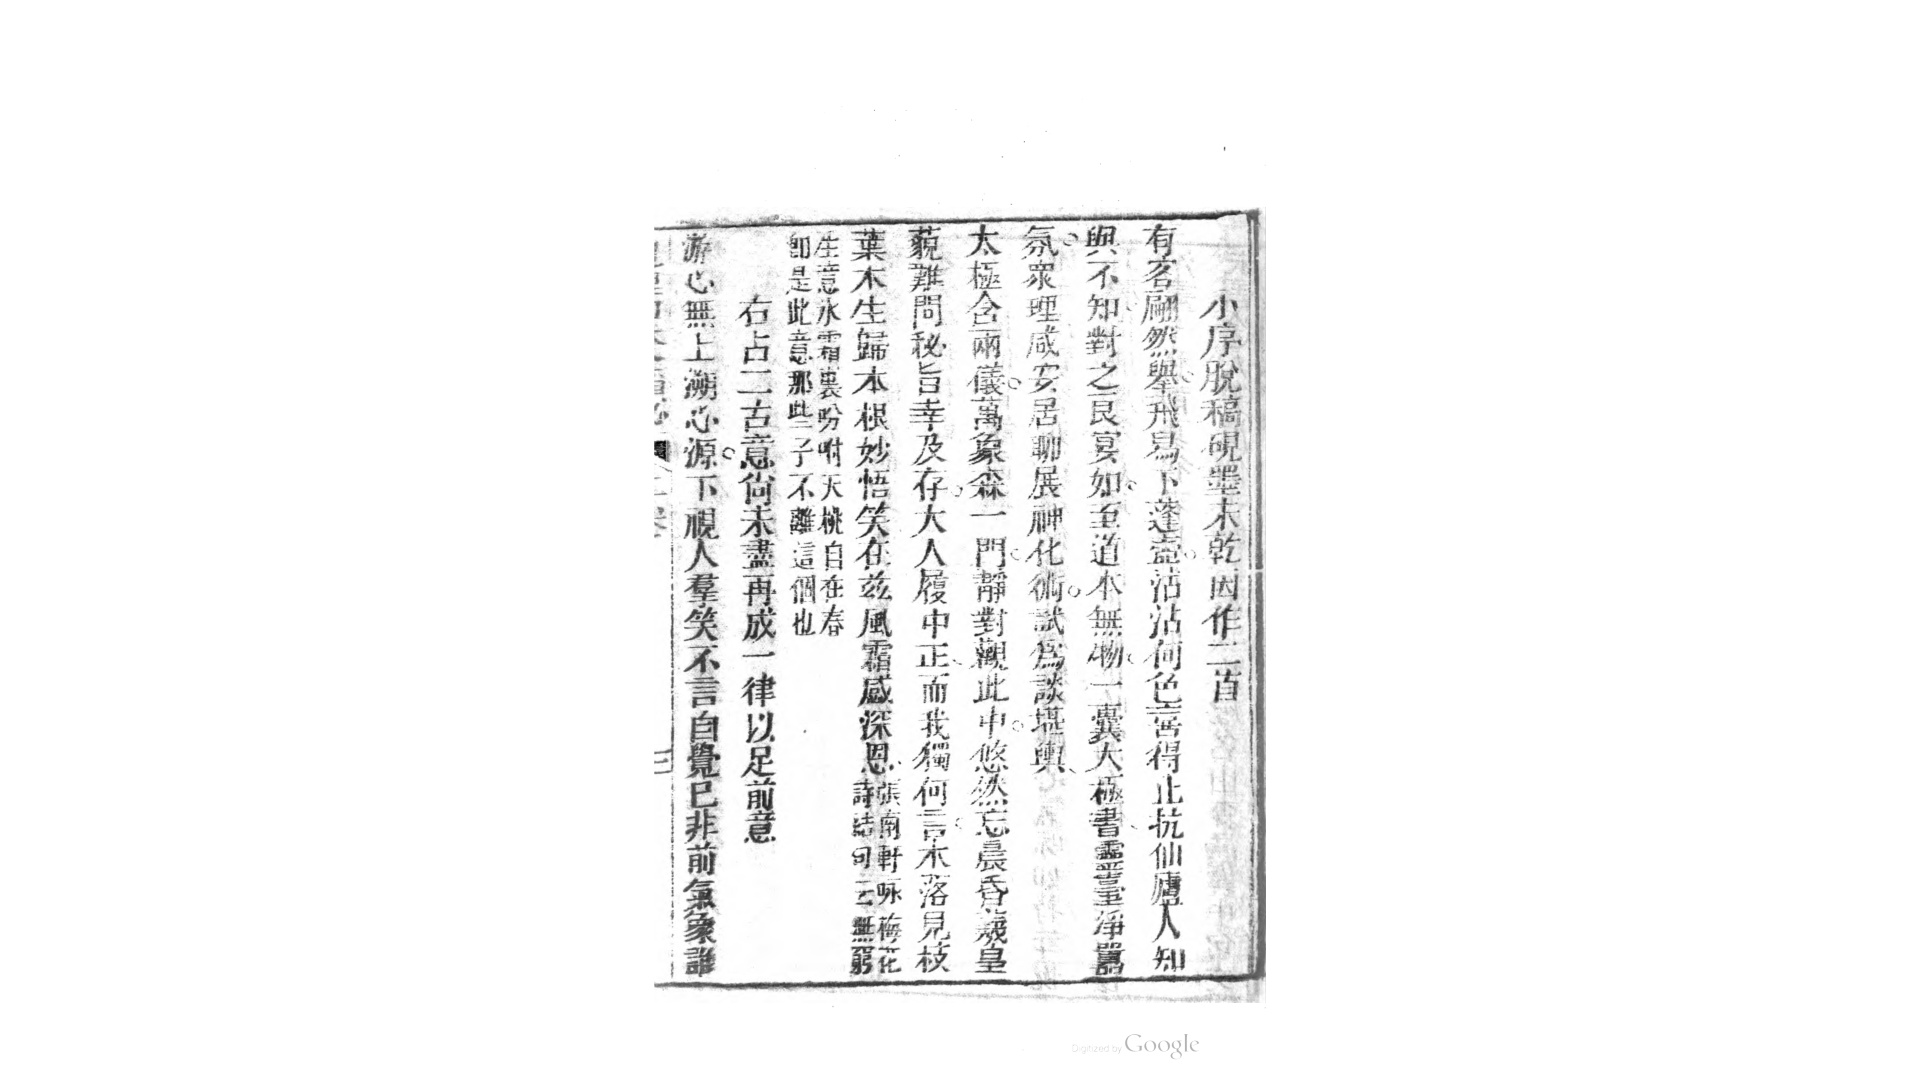 小序脫稿硯墨未乾因作二首
有客翩然舉飛舄下蓬壺沾沾何色喜得止抗仙廬人知
與不知對之良宴如至道本無物一囊大極書靈臺淨囂
氛衆理咸安居聊展神化術試為談堪輿
太極含兩儀萬象森一門靜對觀此中悠然忘晨昏羲皇
藐難問秘旨幸及存大人履中正而我獨何言木落見枝
葉木生歸本根妙悟笑在兹風霜感深恩
張南軒咏梅花
詩結句云無窮
生意氷霜裏吩咐夭桃自在春
卽是此意那些子不離這個也
右占二古意尚未盡再成一律以足前意
游心無上溯心源下視人羣笑不言自覺已非前氣象誰
Digitized by Google